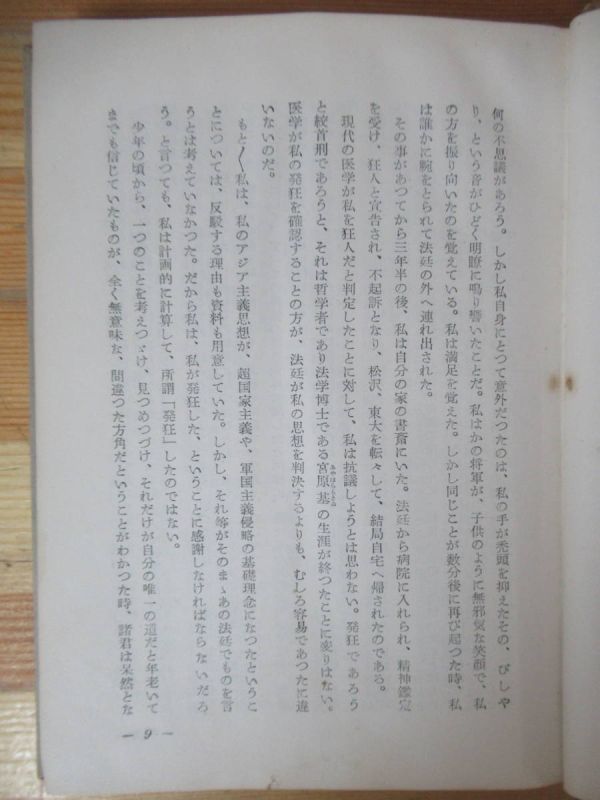 何の不思議があろう。しかし私自身にとつて意外だつたのは、私の手が禿頭を抑えたその、ぴしや
り、という音がひどく明瞭に鳴り響いたことだ。私はかの将軍が、子供のように無邪気な笑顔で、私
の方を振り向いたのを覚えている。私は満足を覚えた。しかし同じことが数分後に再び起つた時、私
は誰かに腕をとられて法廷の外へ連れ出された。
その事があつてから三年半の後、私は自分の家の書斎にいた。法廷から病院に入れられ、精神鑑定
を受け、狂人と宣告され、不起訴となり、松沢、東大を転々して、結局自宅へ帰されたのである。
現代の医学が私を狂人だと判定したことに対して、私は抗議しようとは思わない。発狂であろう
と絞首刑であろうと、それは哲学者であり法学博士である宮原基の生涯が終つたことに変りはない。
医学が私の発狂を確認することの方が、法廷が私の思想を判決するよりも、むしろ容易であつたに違
いないのだ。
もと〱私は、私のアジア主義思想が、超国家主義や、軍国主義侵略の基礎理念になつたというこ
とについては、反駁する理由も資料も用意していた。しかし、それ等がそのまゝあの法廷でものを言
うとは考えていなかつた。だから私は、私が発狂した、ということに感謝しなければならないだろ
う。と言つても、私は計画的に計算して、所謂「発狂」したのではない。
少年の頃から、一つのことを考えつゞけ、見つめつづけ、それだけが自分の唯一の道だと年老いて
までも信じていたものが、全く無意味な、間違つた方角だということがわかつた時、諸君は呆然とな
— 9 —